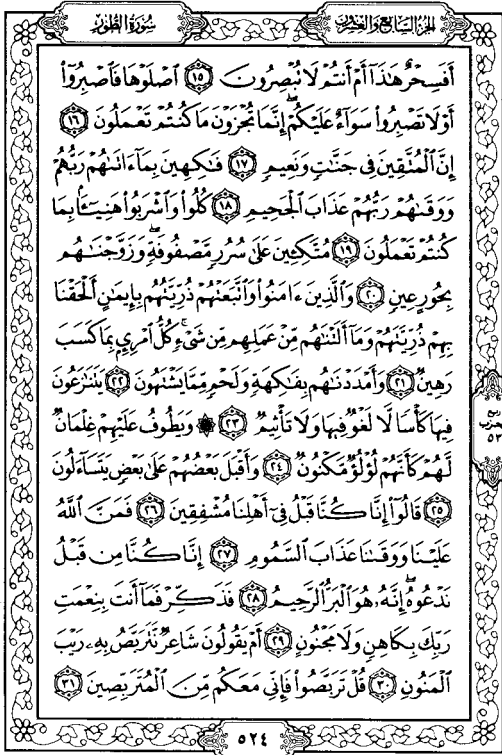 سُورَةُ الطُّورِ
الجُزْءُ السَّابِعُ وَالعِشْرُونَ
أَفَسِحْرٌ هَٰذَآ أَمْ أَنتُمْ لَا تُبْصِرُونَ ١٥ ٱصْلَوْهَا فَٱصْبِرُوٓا۟
أَوْ لَا تَصْبِرُوا۟ سَوَآءٌ عَلَيْكُمْ ۖ إِنَّمَا تُجْزَوْنَ مَا كُنتُمْ تَعْمَلُونَ ١٦
إِنَّ ٱلْمُتَّقِينَ فِى جَنَّٰتٍ وَنَعِيمٍ ١٧ فَٰكِهِينَ بِمَآ ءَاتَىٰهُمْ رَبُّهُمْ
وَوَقَىٰهُمْ رَبُّهُمْ عَذَابَ ٱلْجَحِيمِ ١٨ كُلُوا۟ وَٱشْرَبُوا۟ هَنِيٓـًٔۢا بِمَا
كُنتُمْ تَعْمَلُونَ ١٩ مُتَّكِـِٔينَ عَلَىٰ سُرُرٍ مَّصْفُوفَةٍ ۖ وَزَوَّجْنَٰهُم
بِحُورٍ عِينٍ ٢٠ وَٱلَّذِينَ ءَامَنُوا۟ وَٱتَّبَعَتْهُمْ ذُرِّيَّتُهُم بِإِيمَٰنٍ أَلْحَقْنَا
بِهِمْ ذُرِّيَّتَهُمْ وَمَآ أَلَتْنَٰهُم مِّنْ عَمَلِهِم مِّن شَىْءٍ ۚ كُلُّ ٱمْرِئٍۭ بِمَا كَسَبَ
رَهِينٌ ٢١ وَأَمْدَدْنَٰهُم بِفَٰكِهَةٍ وَلَحْمٍ مِّمَّا يَشْتَهُونَ ٢٢ يَتَنَٰزَعُونَ
فِيهَا كَأْسًا لَّا لَغْوٌ فِيهَا وَلَا تَأْثِيمٌ ٢٣ ۞ وَيَطُوفُ عَلَيْهِمْ غِلْمَانٌ
لَّهُمْ كَأَنَّهُمْ لُؤْلُؤٌ مَّكْنُونٌ ٢٤ وَأَقْبَلَ بَعْضُهُمْ عَلَىٰ بَعْضٍ يَتَسَآءَلُونَ
٢٥ قَالُوٓا۟ إِنَّا كُنَّا قَبْلُ فِىٓ أَهْلِنَا مُشْفِقِينَ ٢٦ فَمَنَّ ٱللَّهُ
عَلَيْنَا وَوَقَىٰنَا عَذَابَ ٱلسَّمُومِ ٢٧ إِنَّا كُنَّا مِن قَبْلُ
نَدْعُوهُ ۖ إِنَّهُۥ هُوَ ٱلْبَرُّ ٱلرَّحِيمُ ٢٨ فَذَكِّرْ فَمَآ أَنتَ بِنِعْمَتِ
رَبِّكَ بِكَاهِنٍ وَلَا مَجْنُونٍ ٢٩ أَمْ يَقُولُونَ شَاعِرٌ نَّتَرَبَّصُ بِهِۦ رَيْبَ
ٱلْمَنُونِ ٣٠ قُلْ تَرَبَّصُوا۟ فَإِنِّى مَعَكُم مِّنَ ٱلْمُتَرَبِّصِينَ ٣١
رُبع
الحِزب
٥٣
٥٢٤